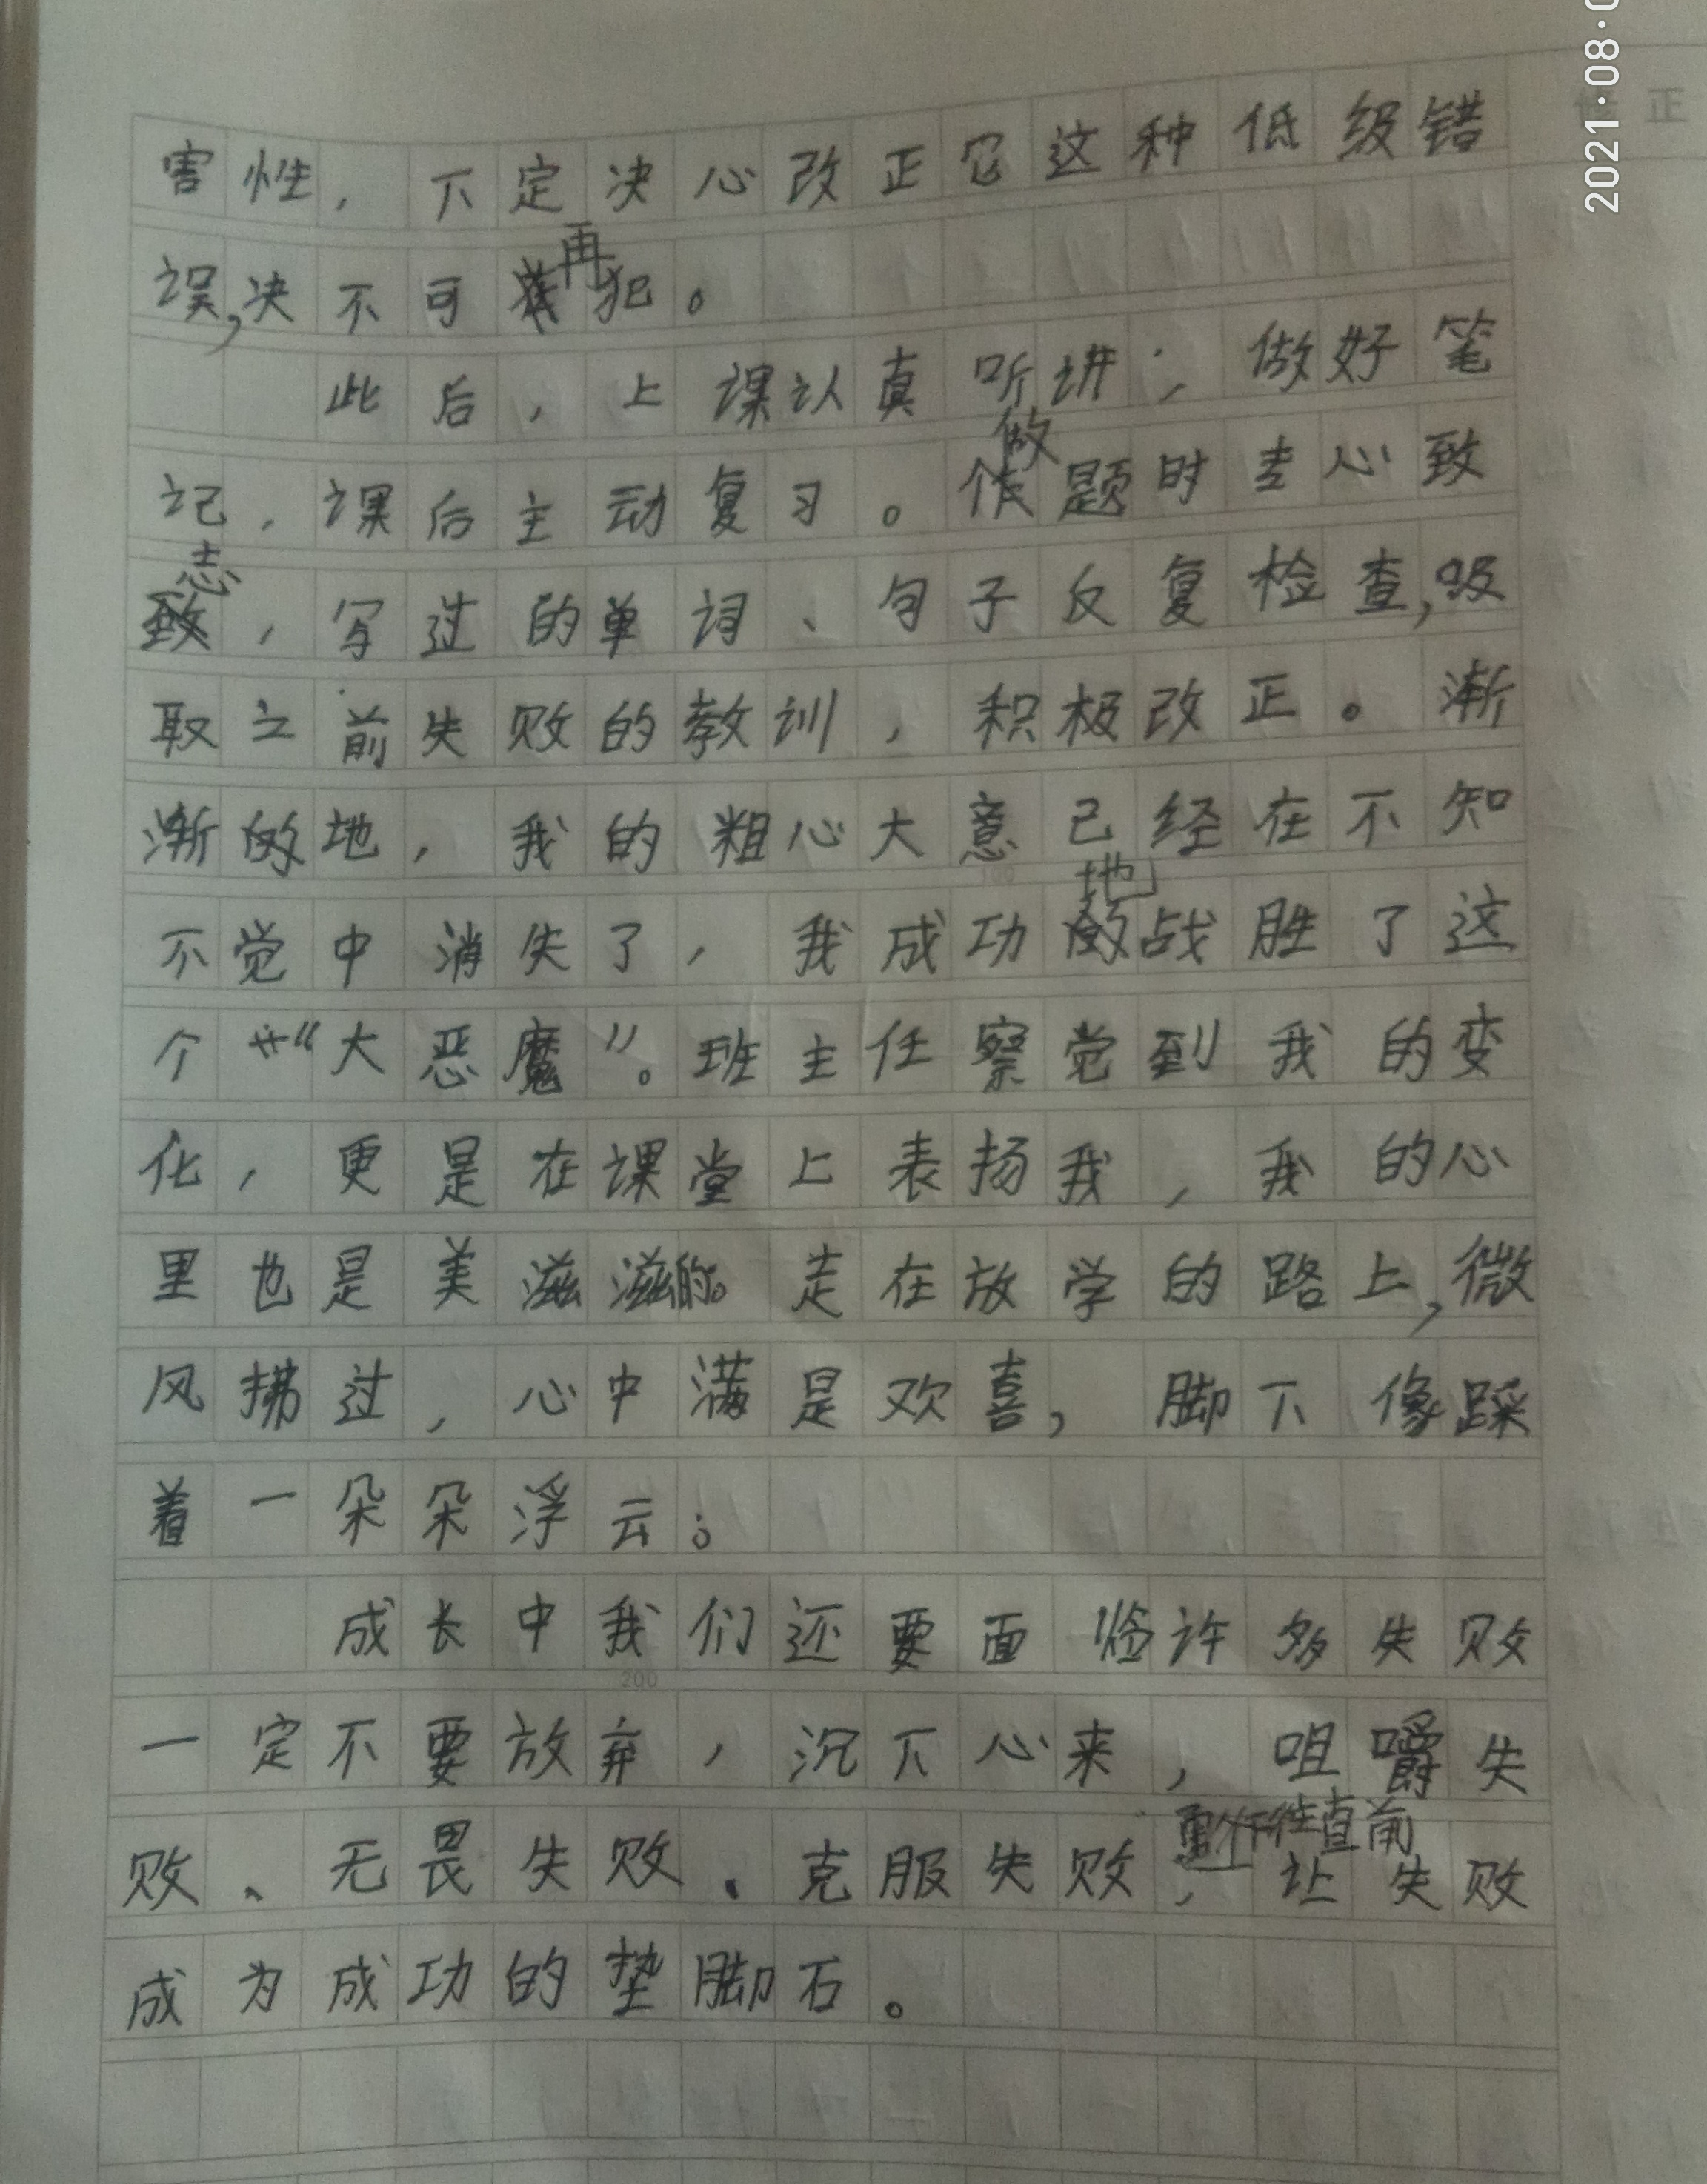 害性，下定决心改正它这种低级错
误，决不可再犯。
此后，上课认真听讲，做好笔
记，课后主动复习。做题时专心致
志，写过的单词、句子反复检查，吸
取之前失败的教训，积极改正。渐
渐地，我的粗心大意已经在不知
不觉中消失了，我成功地战胜了这
个“大恶魔”。班主任察觉到我的变
化，更是在课堂上表扬我，我的心
里也是美滋滋的。走在放学的路上，微
风拂过，心中满是欢喜，脚下像踩
着一朵朵浮云。
成长中我们还要面临许多失败
一定不要放弃，沉下心来，咀嚼失
败、无畏失败、克服失败，勇往直前，让失败
成为成功的垫脚石。
100
200
2021·08·0
正